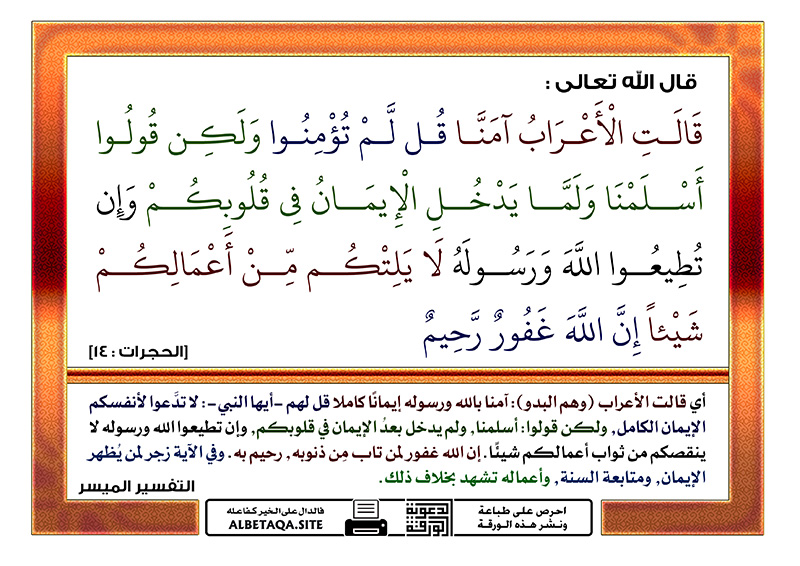 قال الله تعالى :
قَالَتِ الْأَعْرَابُ آمَنَّا قُل لَّمْ تُؤْمِنُوا وَلَكِن قُولُوا
أَسْلَمْنَا وَلَمَّا يَدْخُلِ الْإِيمَانُ فِي قُلُوبِكُمْ وَإِن
تُطِيعُوا اللَّهَ وَرَسُولَهُ لَا يَلِتْكُم مِّنْ أَعْمَالِكُمْ
شَيْئاً إِنَّ اللَّهَ غَفُورٌ رَّحِيمٌ
[الحجرات : ١٤]
أي قالت الأعراب (وهم البدو): آمنا بالله ورسوله إيمانًا كاملا قل لهم -أيها النبي-: لا تدَّعوا لأنفسكم
الإيمان الكامل, ولكن قولوا: أسلمنا, ولم يدخل بعدُ الإيمان في قلوبكم, وإن تطيعوا الله ورسوله لا
ينقصكم من ثواب أعمالكم شيئًا. إن الله غفور لمن تاب مِن ذنوبه, رحيم به. وفي الآية زجر لمن يُظهر
الإيمان, ومتابعة السنة, وأعماله تشهد بخلاف ذلك.
التفسير الميسر
احرص على طباعة
ونشر هذه الورقة
الورقة الدعوية
فالدال على الخير كفاعله
ALBETAQA.SITE